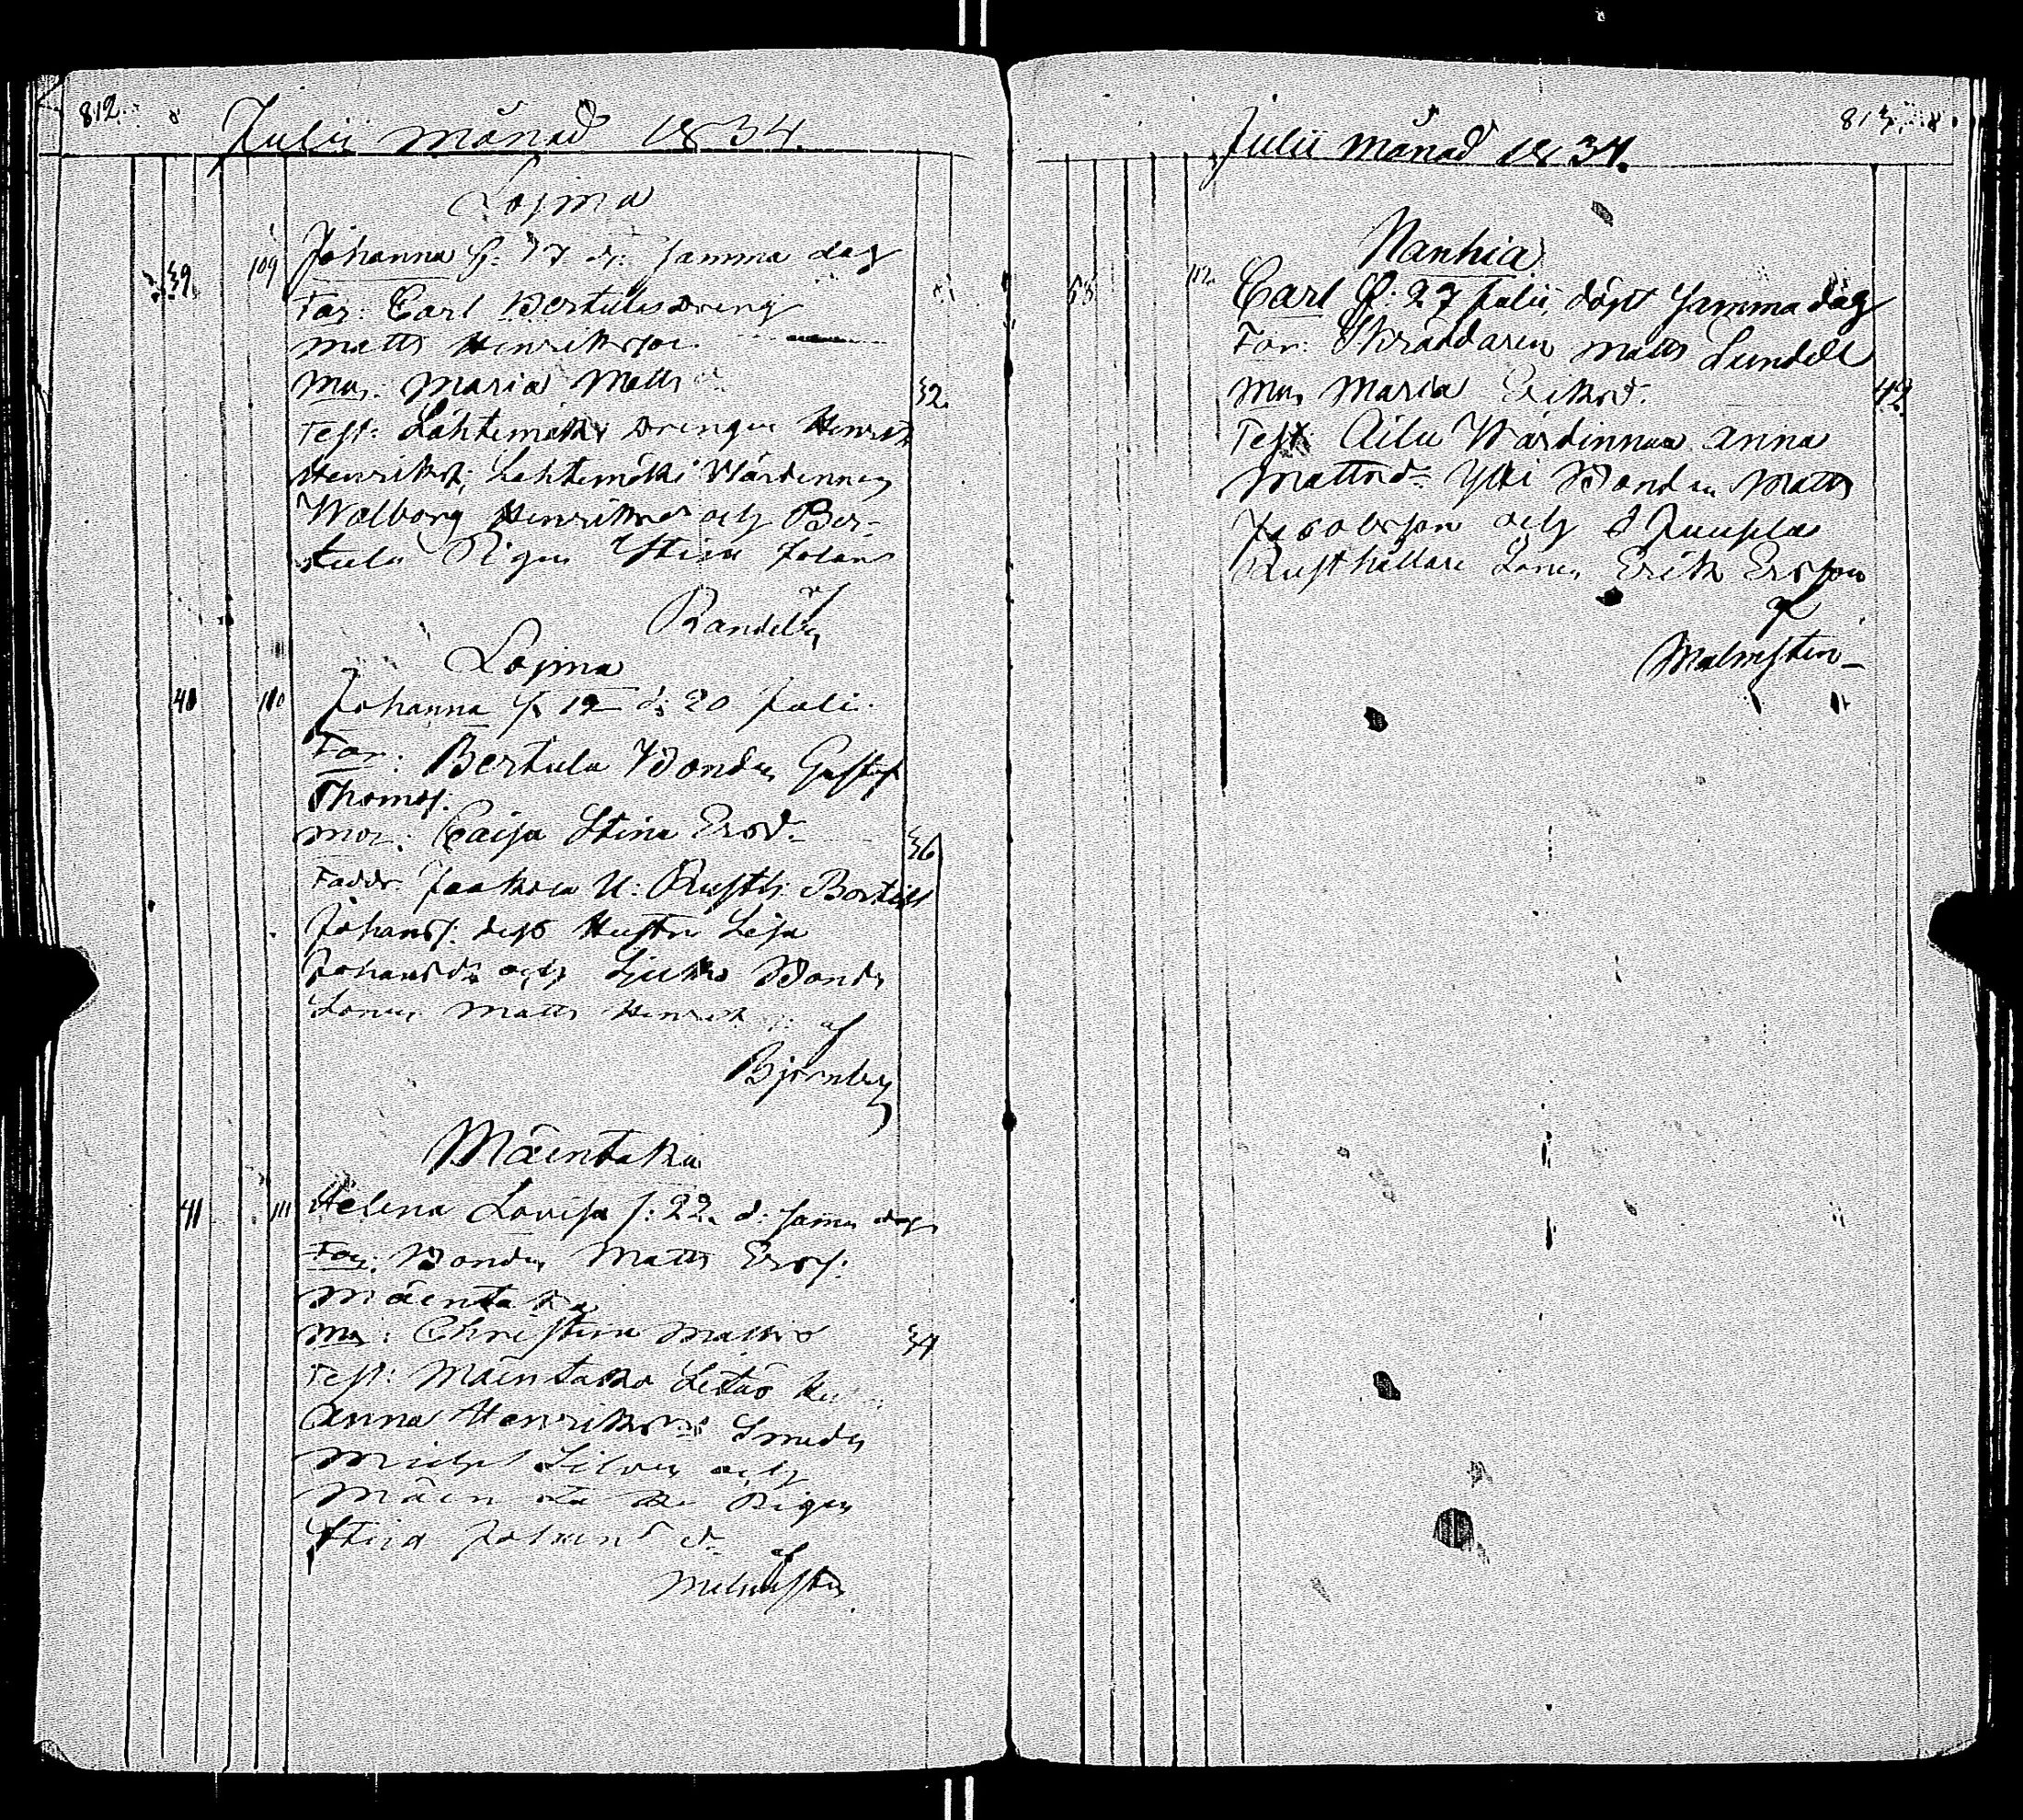 812.
Julii månad 1834.
Lojma
39 109 Johanna f. 17 d. samma dag
Far: Carl Bertulas Dreng
Matts Henriksson
Mor: Maria Matts 32.
Test: Lähtemäki Drengen Henrik
Henriksf; Lehtemäki Wärdinnan
Walborg Henriksd och Ber-
tula Pigan Stina Johans
af
Randelin
Lojma
40 110 Johanna f. 19 d: 20 Juli.
Far: Bertula Bonden Gustaf
Thomsf:
Mor: Caisa Stina Ersd. 36
Faddr. Jaakola U: Rusth: Bertill
Johansf: dess Hustru Lisa
Johansd: och Bonde
Sonen Matts Henriks af
Björnberg
Mäentaka
41 111 Helena Lovisa f: 22. d: samma dag
Far: Bonden Matts Ersf:
Mäentaka
Mor: Christina Matts 34
Test: Mäentaka
Anna Henriksd: Smeden
Michel och
Mäentaka Pigan
Stina Johansd. af
Malmsten.
813.
Julii månad 1834.
Nanhia
68 112. Carl f: 27 Julii, döpt samma dag
Far: Skräddaren Matts Lundell
Mor Maria Eriksd. 42
Test Aila Wärdinnan Anna
Mattsd: Ylli Bonden Matts
Jacobsson och
Rusthållare Sonen Erik Ersson
af
Malmsten